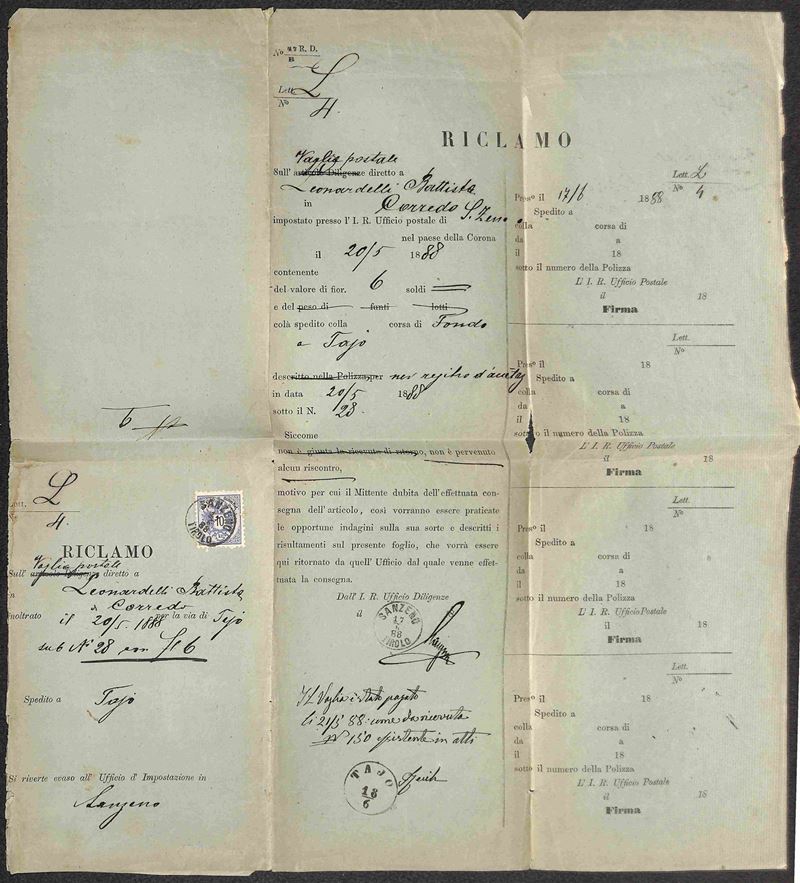 No 47 R. D.
B
Lett. L
No 4.
RICLAMO
Vaglia postale
Sull' articolo Diligenze diretto a
Leonardelli Battista
in Corredo
impostato presso l' I. R. Ufficio postale di S. Zeno
nel paese della Corona
il 20/5 1888
contenente
del valore di fior. 6 soldi
e del peso di funti lotti
colà spedito colla corsa di Fondo
a Tajo
descritto nella Polizza per
in data 20/5 1888
sotto il N. 28.
Siccome
non è giunta la ricevuta di ritorno, non è pervenuto
alcun riscontro,
motivo per cui il Mittente dubita dell' effettuata con-
segna dell' articolo, così vorranno essere praticate
le opportune indagini sulla sua sorte e descritti i
risultamenti sul presente foglio, che vorrà essere
qui ritornato da quell' Ufficio dal quale venne effet-
tuata la consegna.
Dall' I. R. Ufficio Diligenze
il
SANZENO
17
88
TIROLO
Il Vaglia è stato pagato
li 21/5 88 come da ricevuta
No 150 esistente in atti
TAJO
18
6
Lett. L
No 4
Pres° il 17/6 1888
Spedito a
colla corsa di
da a
il 18
sotto il numero della Polizza
L' I. R. Ufficio Postale
il 18
Firma
Lett.
No
Pres° il 18
Spedito a
colla corsa di
da a
il 18
sotto il numero della Polizza
L' I. R. Ufficio Postale
il 18
Firma
Lett.
No
Pres° il 18
Spedito a
colla corsa di
da a
il 18
sotto il numero della Polizza
L' I. R. Ufficio Postale
il 18
Firma
Lett.
No
Pres° il 18
Spedito a
colla corsa di
da a
il 18
sotto il numero della Polizza
L' I. R. Ufficio Postale
il 18
Firma
Lett. L
No 4.
SANZENO
88
TIROLO
10
RICLAMO
Vaglia postale
Sull' articolo Diligenze diretto a
in Leonardelli Battista
a Corredo
inoltrato il 20/5 1888 per la via di Tajo
sub No 28 con fl 6
Spedito a Tajo
Si riverte evaso all' Ufficio d' Impostazione in
Sanzeno